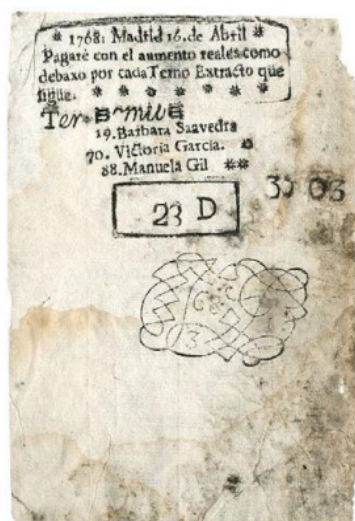 * 1768: Madrid 16. de Abril *
Pagarè con el aumento reales como
debaxo por cada Terno Extracto que
sigue. * * * * * * *
Ter mil
19. Barbara Saavedra
70. Victoria Garcia. *
88. Manuela Gil **
23 D